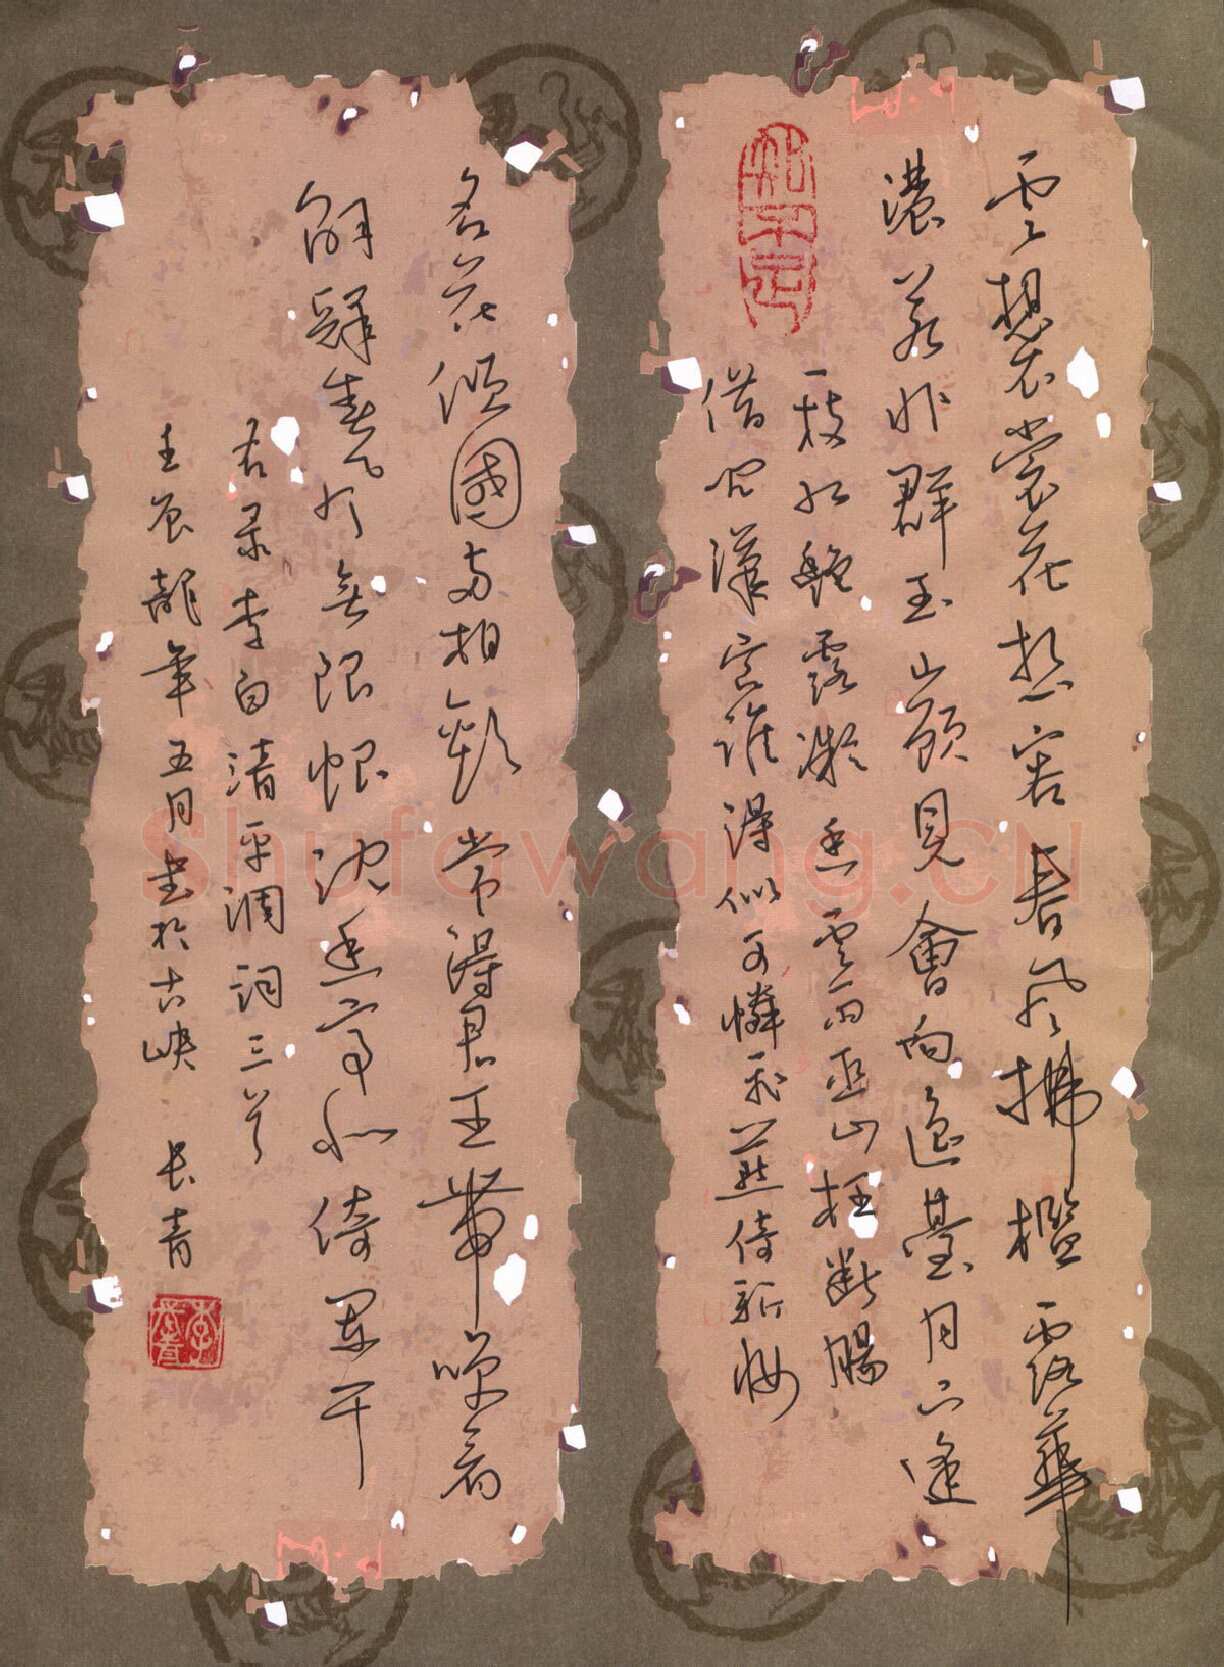 雲想衣裳花想容春风拂檻露華
濃若非群玉山頭見會向瑶臺月下逢
一枝红艷露凝香雲雨巫山枉断腸
借问漢宫誰得似可憐飛燕倚新妝
名花倾國两相歡常得君王带笑看
解釋春风无限恨沈香亭北倚阑干
右录李白清平调词三首
壬辰龍年五月书於古峡 长青
Shufawang.CN